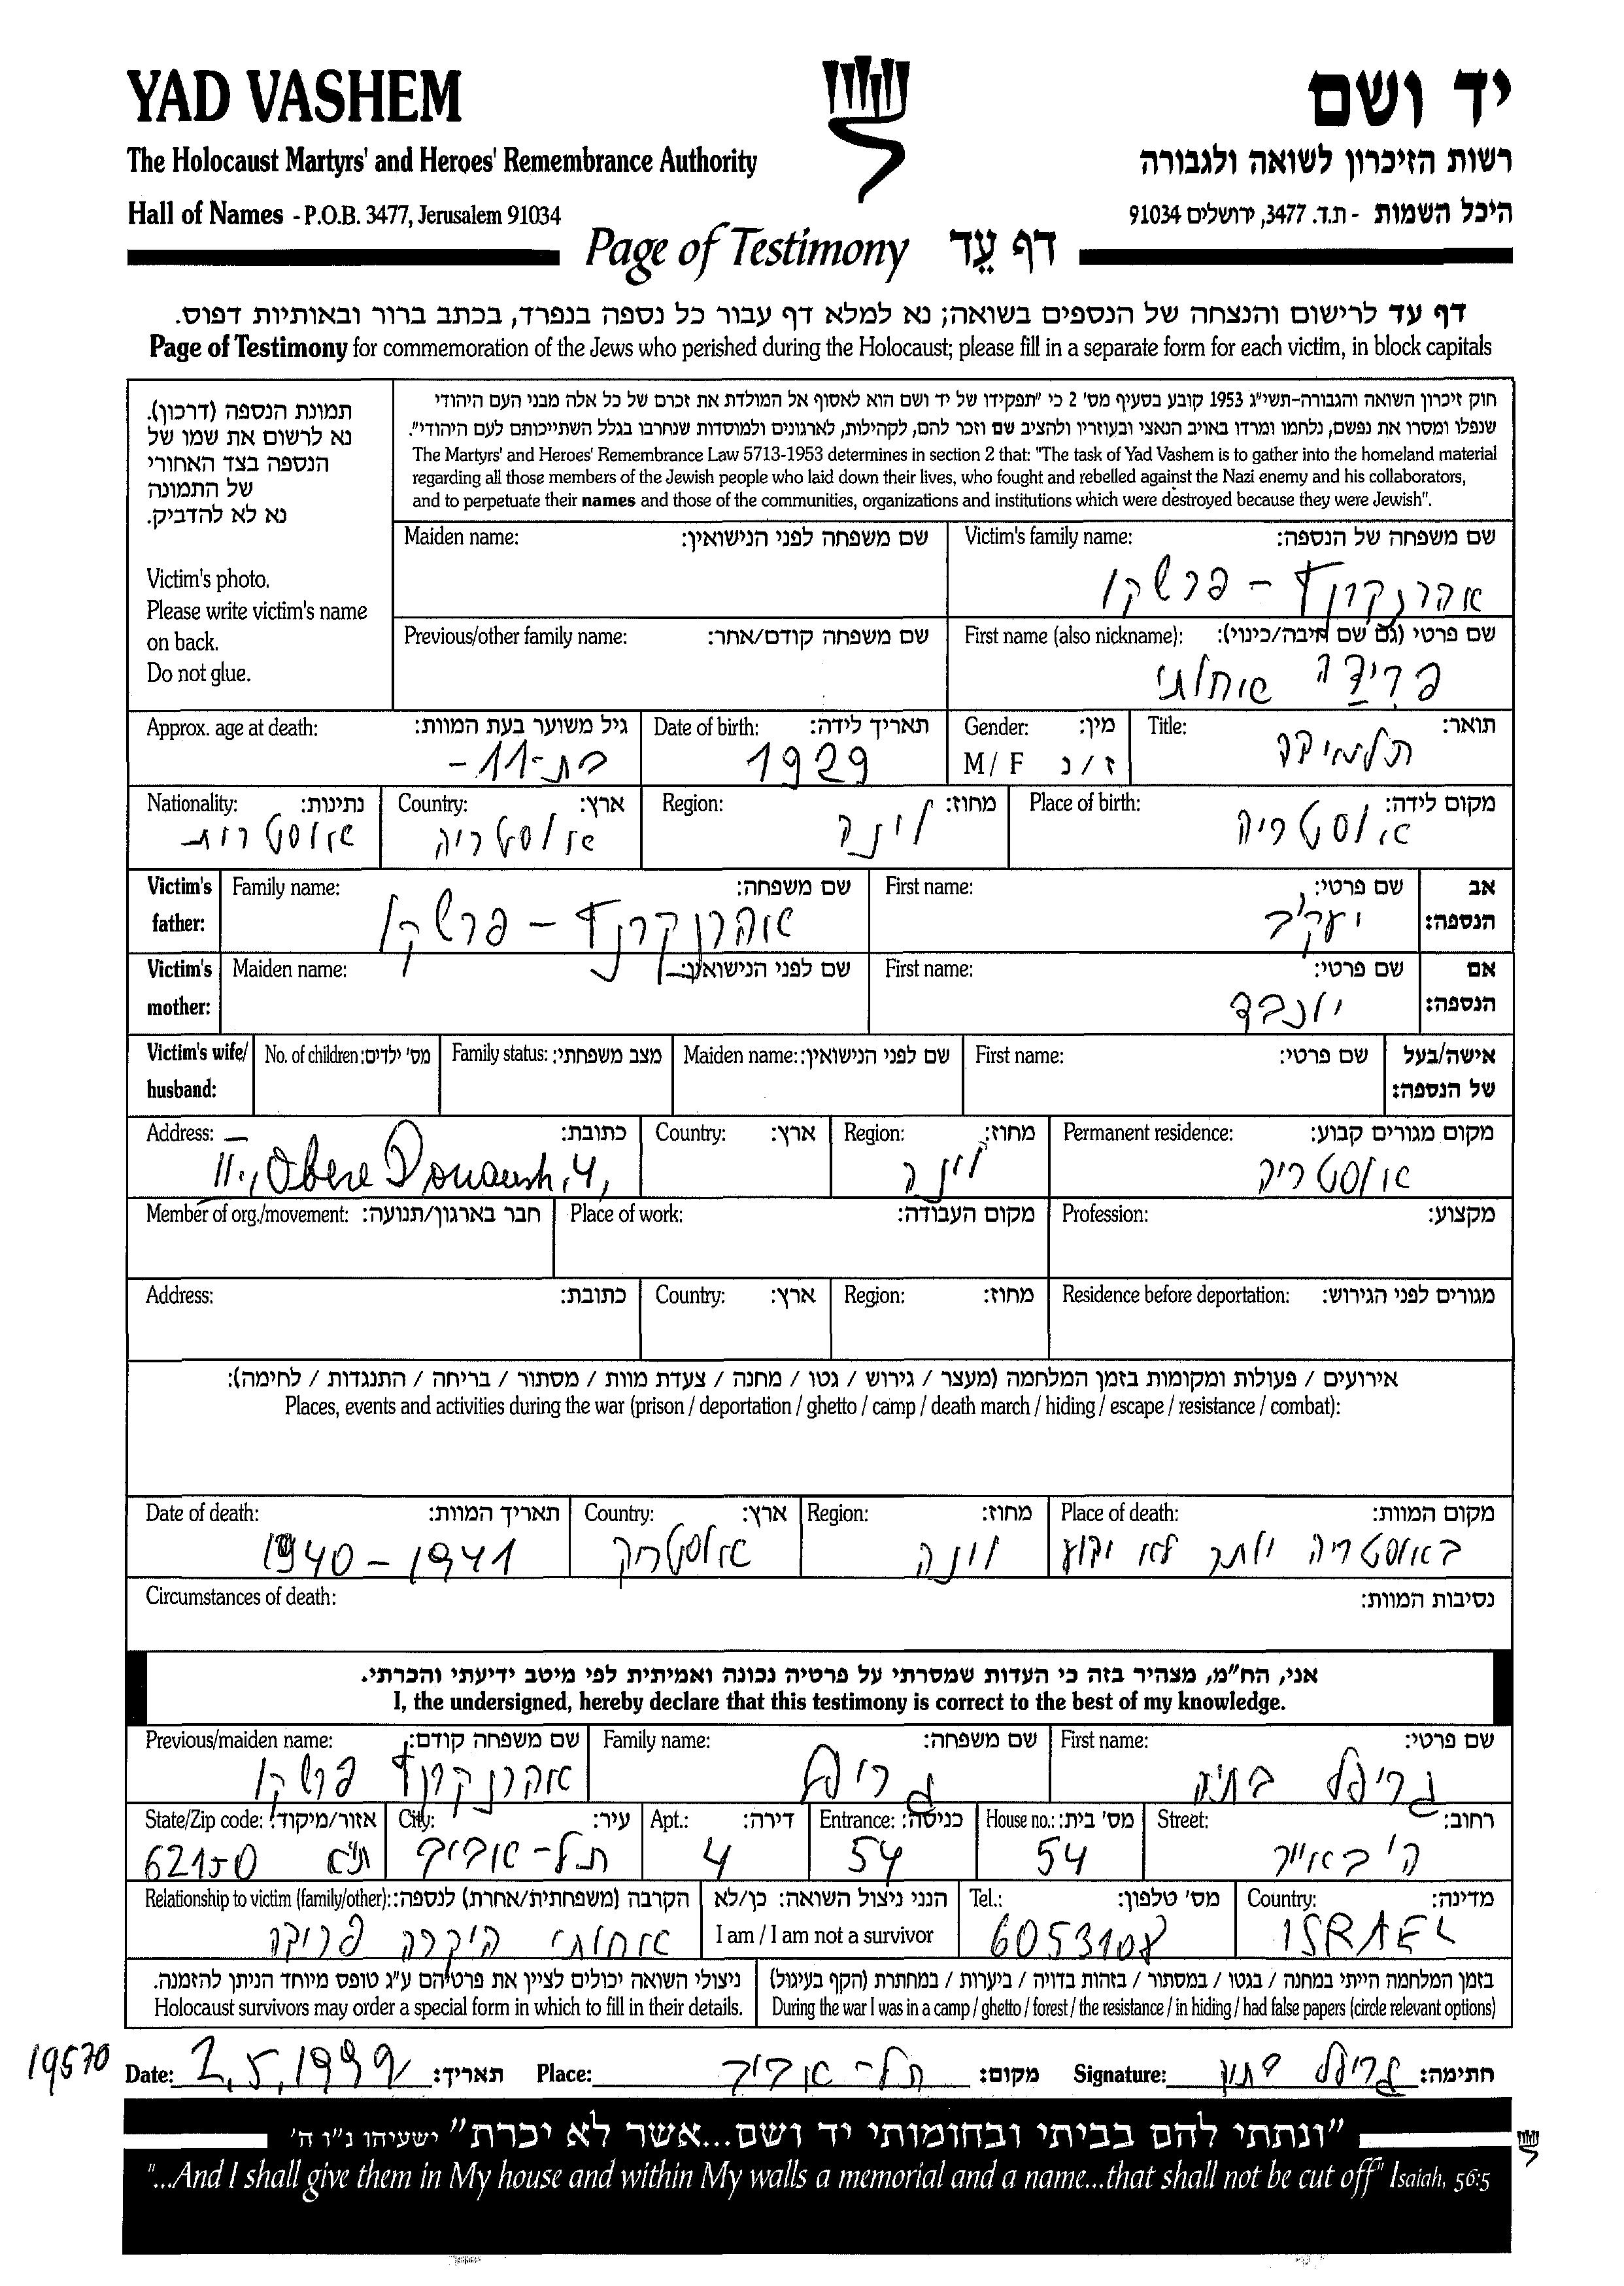 YAD VASHEM
יד ושם
The Holocaust Martyrs' and Heroes' Remembrance Authority
רשות הזיכרון לשואה ולגבורה
Hall of Names - P.O.B. 3477, Jerusalem 91034
היכל השמות - ת.ד. 3477, ירושלים 91034
Page of Testimony דף עֵד
דף עד לרישום והנצחה של הנספים בשואה; נא למלא דף עבור כל נספה בנפרד, בכתב ברור ובאותיות דפוס.
Page of Testimony for commemoration of the Jews who perished during the Holocaust; please fill in a separate form for each victim, in block capitals
תמונת הנספה (דרכון).
נא לרשום את שמו של
הנספה בצד האחורי
של התמונה
נא לא להדביק.
Victim's photo.
Please write victim's name
on back.
Do not glue.
חוק זיכרון השואה והגבורה-תשי"ג 1953 קובע בסעיף מס' 2 כי "תפקידו של יד ושם הוא לאסוף אל המולדת את זכרם של כל אלה מבני העם היהודי
שנפלו ומסרו את נפשם, נלחמו ומרדו באויב הנאצי ובעוזריו ולהציב שם וזכר להם, לקהילות, לארגונים ולמוסדות שנחרבו בגלל השתייכותם לעם היהודי".
The Martyrs' and Heroes' Remembrance Law 5713-1953 determines in section 2 that: "The task of Yad Vashem is to gather into the homeland material
regarding all those members of the Jewish people who laid down their lives, who fought and rebelled against the Nazi enemy and his collaborators,
and to perpetuate their names and those of the communities, organizations and institutions which were destroyed because they were Jewish".
Victim's family name: שם משפחה של הנספה:
אהרנקרנץ - פרשקו
Maiden name: שם משפחה לפני הנישואין:
First name (also nickname): שם פרטי (גם שם חיבה/כינוי):
פרידה אחותי
Previous/other family name: שם משפחה קודם/אחר:
Title: תואר:
תלמידה
Gender: מין:
M / F ז / נ
Date of birth: תאריך לידה:
1929
Approx. age at death: גיל משוער בעת המוות:
בת-11-
Place of birth: מקום לידה:
אוסטריה
Region: מחוז:
וינה
Country: ארץ:
אוסטריה
Nationality: נתינות:
אוסטרית
Victim's father: אב הנספה:
First name: שם פרטי:
יעקב
Family name: שם משפחה:
אהרנקרנץ - פרשקו
Victim's mother: אם הנספה:
First name: שם פרטי:
יוכבד
Maiden name: שם לפני הנישואין:
Victim's wife/ husband: אישה/בעל של הנספה:
First name: שם פרטי:
Maiden name: שם לפני הנישואין:
Family status: מצב משפחתי:
No. of children: מס' ילדים:
Permanent residence: מקום מגורים קבוע:
אוסטריה
Region: מחוז:
וינה
Country: ארץ:
Address: כתובת:
II., Obere Donaustr, 4,
Profession: מקצוע:
Place of work: מקום העבודה:
Member of org./movement: חבר בארגון/תנועה:
Residence before deportation: מגורים לפני הגירוש:
Region: מחוז:
Country: ארץ:
Address: כתובת:
אירועים / פעולות ומקומות בזמן המלחמה (מעצר / גירוש / גטו / מחנה / צעדת מוות / מסתור / בריחה / התנגדות / לחימה):
Places, events and activities during the war (prison / deportation / ghetto / camp / death march / hiding / escape / resistance / combat):
Place of death: מקום המוות:
באוסטריה יותר לא ידוע
Region: מחוז:
וינה
Country: ארץ:
אוסטריה
Date of death: תאריך המוות:
1940 - 1941
Circumstances of death: נסיבות המוות:
אני, הח"מ, מצהיר בזה כי העדות שמסרתי על פרטיה נכונה ואמיתית לפי מיטב ידיעתי והכרתי.
I, the undersigned, hereby declare that this testimony is correct to the best of my knowledge.
First name: שם פרטי:
Family name: שם משפחה:
Previous/maiden name: שם משפחה קודם:
אהרנקרנץ פרשקו
Street: רחוב:
ה' באייר
House no.: מס' בית:
54
Entrance: כניסה:
54
Apt.: דירה:
4
City: עיר:
תל-אביב
State/Zip code: אזור/מיקוד:
62150 ת"א
Country: מדינה:
ISRAEL
Tel.: מס' טלפון:
6053108
הנני ניצול השואה: כן/לא
I am / I am not a survivor
Relationship to victim (family/other): הקרבה (משפחתית/אחרת) לנספה:
אחותי היקרה פרידה
בזמן המלחמה הייתי במחנה / בגטו / במסתור / בזהות בדויה / ביערות / במחתרת (הקף בעיגול)
During the war I was in a camp / ghetto / forest / the resistance / in hiding / had false papers (circle relevant options)
ניצולי השואה יכולים לציין את פרטיהם ע"ג טופס מיוחד הניתן להזמנה.
Holocaust survivors may order a special form in which to fill in their details.
19570
Date: 2.5.1999 תאריך:
Place: תל-אביב מקום:
Signature: חתימה:
"ונתתי להם בביתי ובחומותי יד ושם...אשר לא יכרת" ישעיהו נ"ו ה'
"...And I shall give them in My house and within My walls a memorial and a name...that shall not be cut off" Isaiah, 56:5